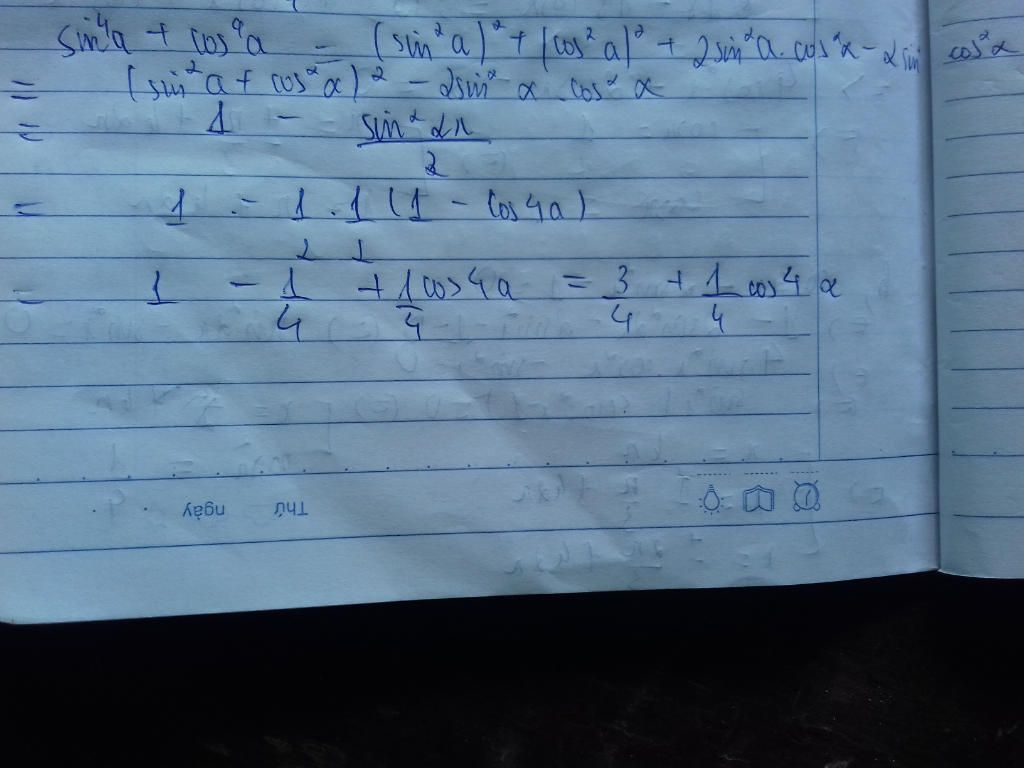 sin⁴a + cos⁴a = (sin²a)² + (cos²a)² + 2sin²a.cos²x - 2sin cos²x
= (sin²a + cos²x)² - 2sin²x.cos²x
= 1 - sin²2x/2
= 1 - 1/2 . 1/1 (1 - cos4a)
= 1 - 1/4 + 1/4 cos4a = 3/4 + 1/4 cos4x
Thứ ngày